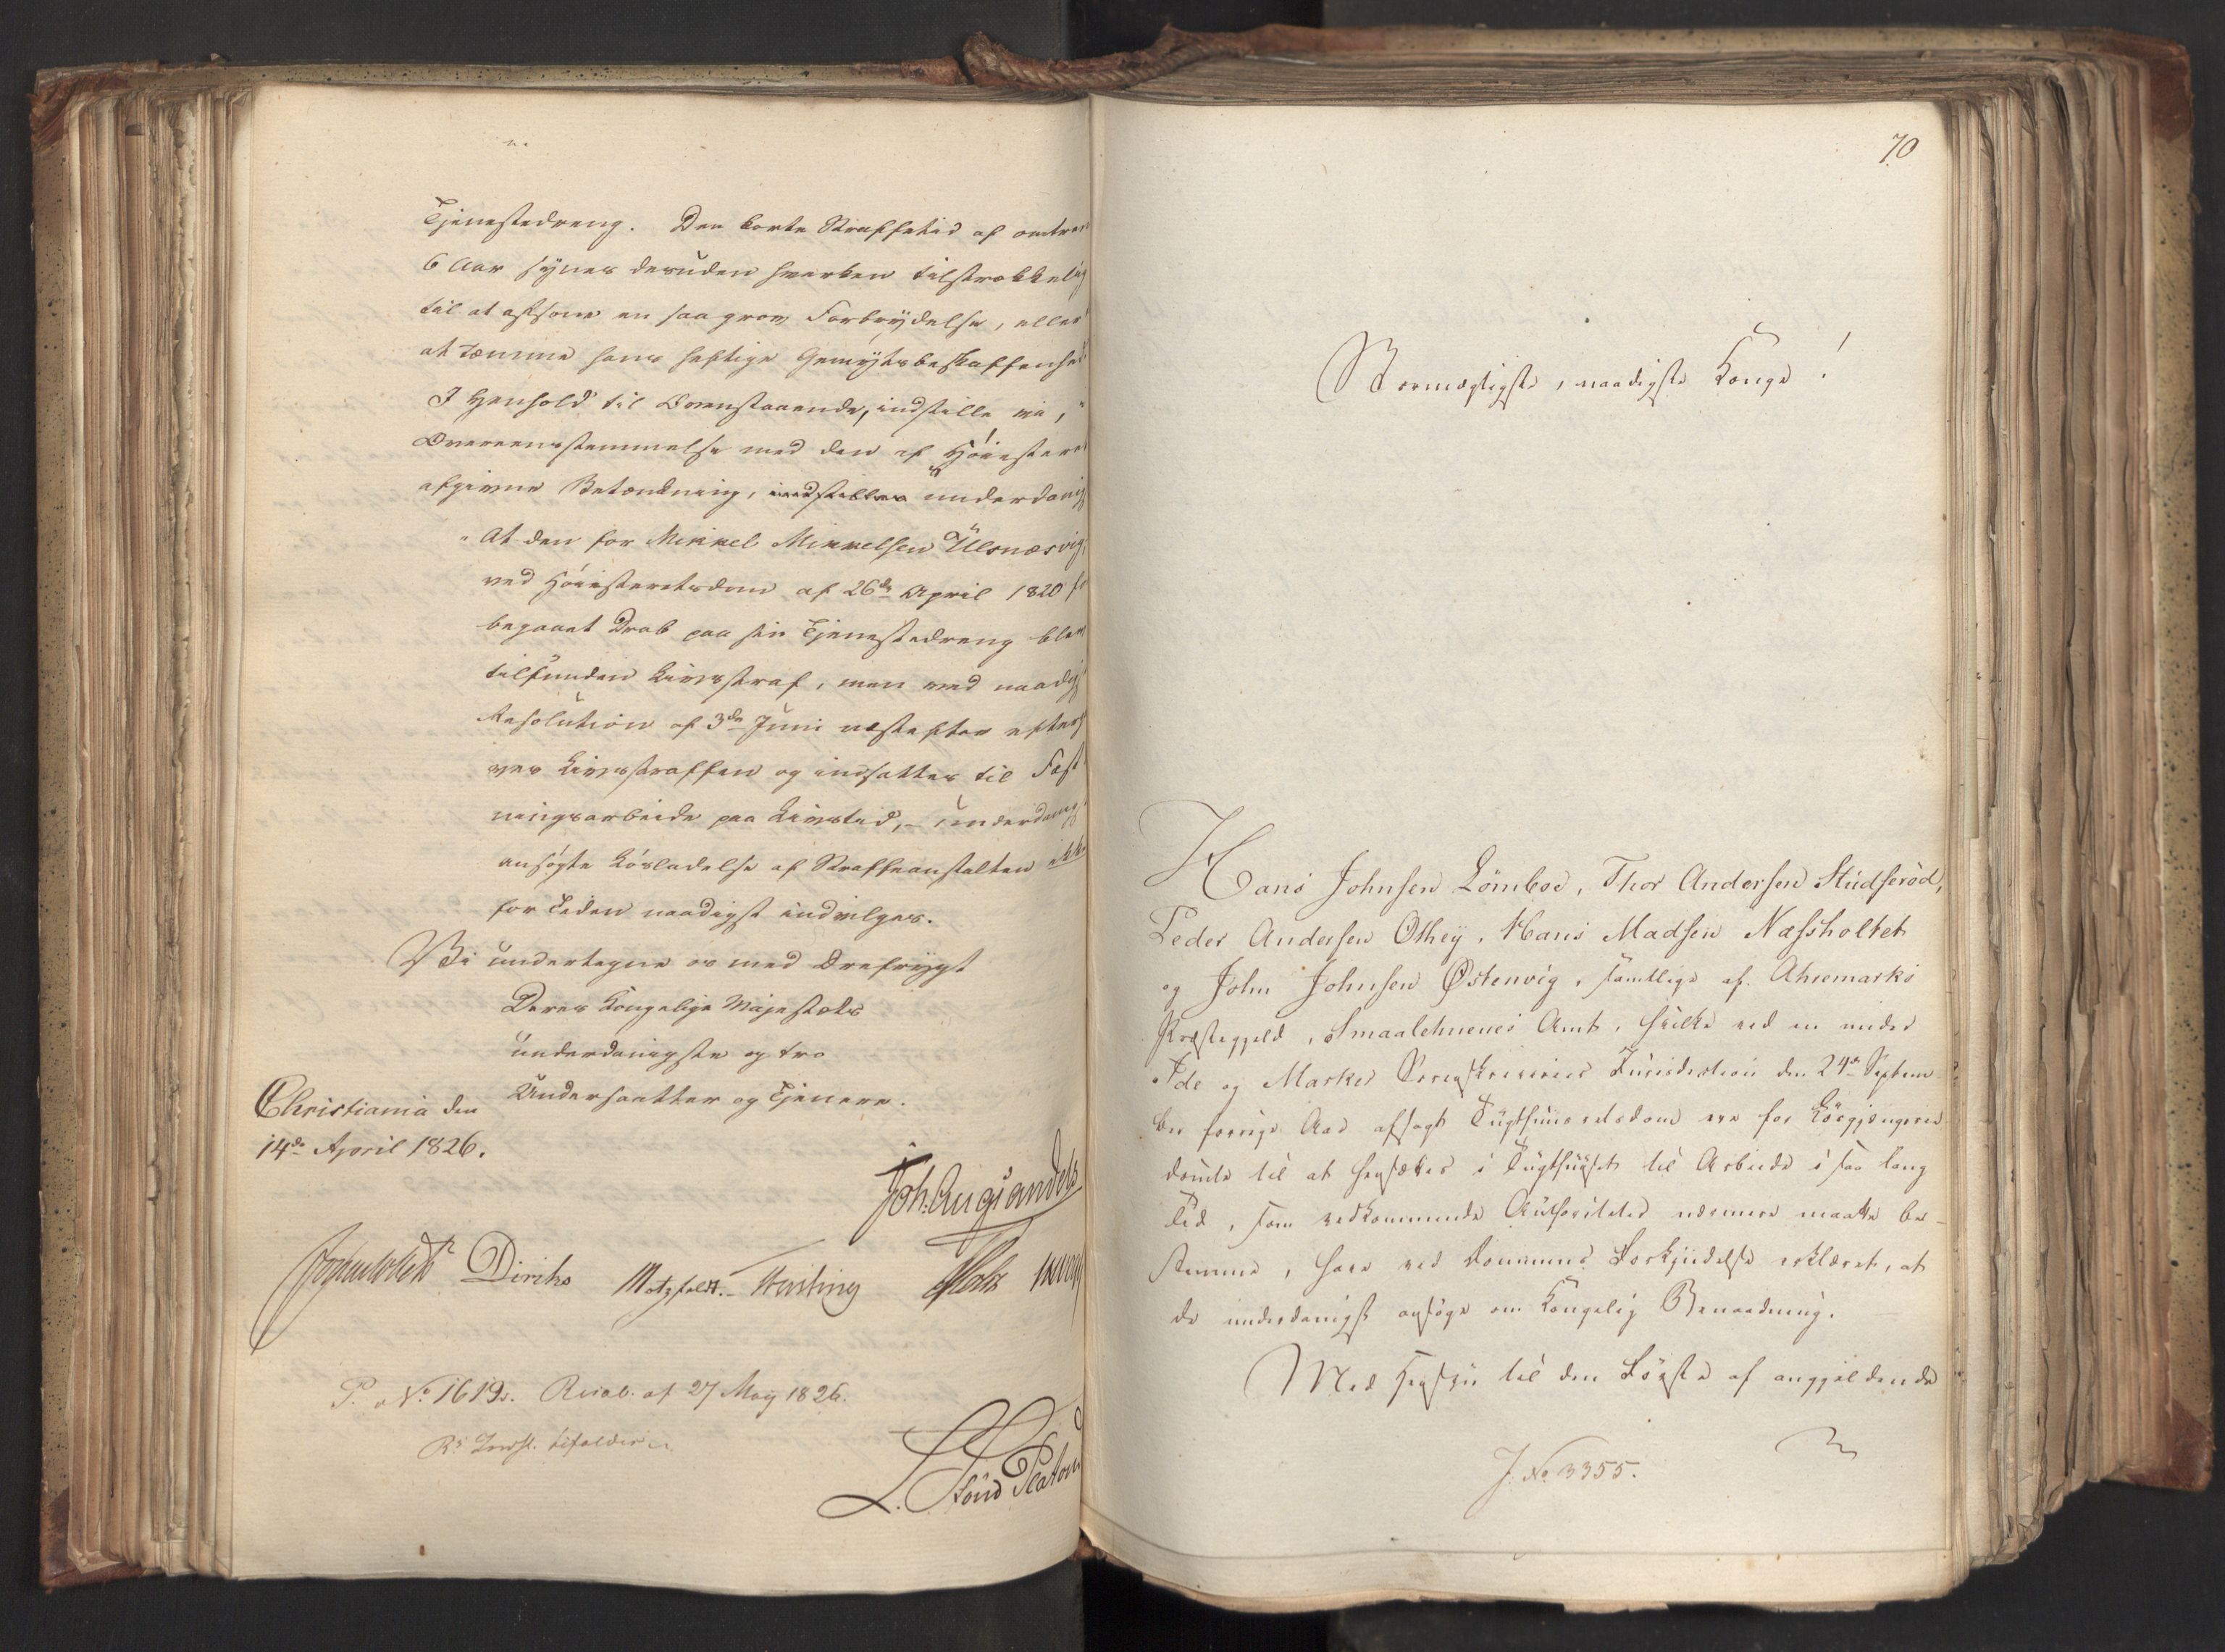 Tjenestedreng. Den korte Straffetid af omtren
6 Aar synes desuden hverken tilstrækkelig
til at afsone en saa grov Forbrydelse, eller
at tæmme hans heftige Gemytsbeskaffenhed
I Henhold til Ovenstaaende, indstille vi, i
Overeensstemmelse med den af Høiesteret
afgivne Betænkning, indstilles underdanig
"At den for Mikkel Mikkelsen Ulsnæsvig,
ved Høiesteretsdom af 26de April 1820 fo
begaaet Drab paa sin Tjenestedreng blev
tilfunden Livsstraf, men ved naadigst
Resolution af 3de Juni næstefter efterg
ves Livsstraffen og indsattes til Fæst
ningsarbeide paa Livstid, - underdanigst
ansøgte Løsladelse af Straffeanstalten ikke
for Tiden naadigst indvilges.
Vi undertegne os med Ærefrygt
Deres Kongelige Majestæts
underdanigste og tro
Undersaatter og Tjenere.
Christiania den
14de April 1826.
Joh. Aug. Sandels
Diriks Motzfeldt. Hersleb
P. No 1619. Resol. af 27 May 1826.
Indst. bifaldes
70
Stormægtigste, naadigste Konge!
Hans Johnsen Lömboe, Thor Andersen Studseröd,
Peder Andersen Othey, Hans Madsen Næssholtet
og John Johnsen Østenvig, samtlige af Ahremarks
Præstegjeld, Smaalehnenes Amt, hvilke ved en under
Ide og Markes Sorenskriveries Jurisdiction den 24de Septem-
ber forrige Aar afsagt Tugthuusretsdom ere for Løsgjængerie
dømte til at hensættes i Tugthuuset til Arbeide i saa lang
Tid, som vedkommende Autoriteter nærmere maatte be-
stemme, have ved Dommens Forkyndelse erklæret, at
de underdanigst ansøge om Kongelig Benaadning.
Med Hensyn til den Første af angjeldende
J. No 3355.